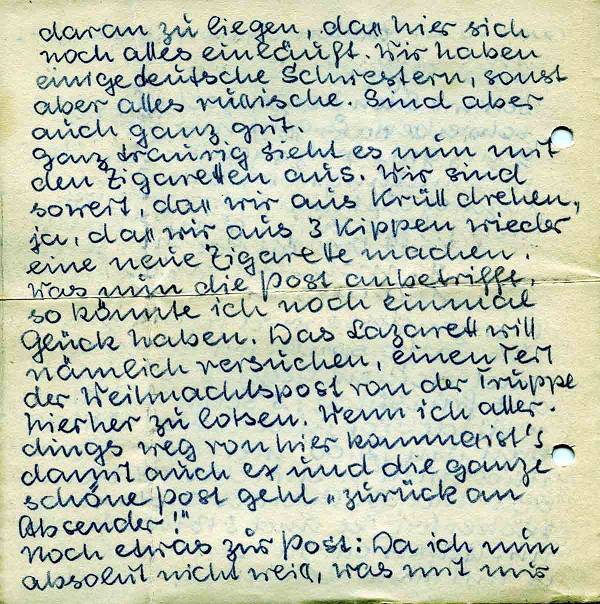 daran zu liegen, daß hier sich
noch alles einläuft. Wir haben
einige deutsche Schwestern, sonst
aber alles russische. Sind aber
auch ganz gut.
Ganz traurig sieht es nun mit
den Zigaretten aus. Wir sind
soweit, daß wir aus Krüll drehen,
ja, daß wir aus 3 Kippen wieder
eine neue Zigarette machen.
Was nun die Post anbetrifft,
so könnte ich noch einmal
Glück haben. Das Lazarett will
nämlich versuchen, einen Teil
der Weihnachtspost von der Truppe
hierher zu lotsen. Wenn ich aller-
dings weg von hier komme, ist's
damit auch ex und die ganze
schöne Post geht "zurück an
Absender!"
Noch etwas zur Post: Da ich nun
absolut nicht weiß, was mit mir